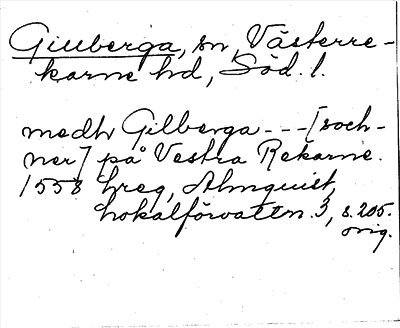 Giuberga, sn, Västerre-
karne hd, Söd. l.
medh Gilberga --- [soch-
ner] på Vestra Rekarne.
1558 hreg, Almquist,
Lokalförvaltn. 3, s. 205.
orig.